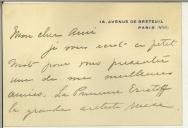 14, AVENUE DE BRETEUIL
PARIS (VIIE)
Mon cher Ami
je vous envoie ce petit
mot pour vous présenter
une de mes meilleures
amies. La Princesse
la grande artiste russe